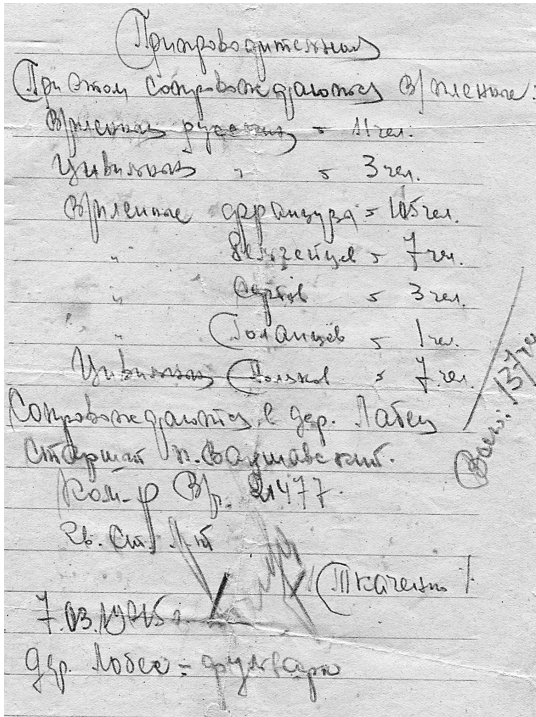 Припроводительная
При этом сопровождаются в/пленные:
В/пленных русских = 11 чел.
Цивильных " = 3 чел.
В/пленные француза = 105 чел.
" Бельгейцев = 7 чел.
" Сербов = 3 чел.
" Голанцев = 1 чел.
Цивильных Поляков = 7 чел.
Всего: 137 че
Сопровождаются в дер. Лабец
Старший к. Варшавский.
Ком-р В/ч. 21477.
Гв. Ст. Л-т
/Ткаченко/
7.03.1945 г.
дер. Лобес = фульварк